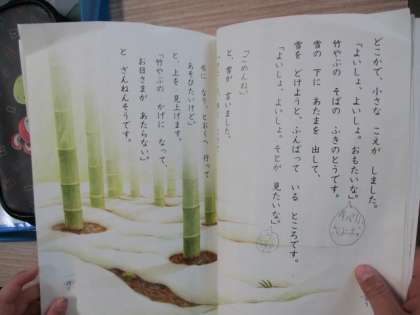 どこかで、小さな こえが しました。
「よいしょ、よいしょ。おもたいな。」
竹やぶの そばの ふきのとうです。
雪の 下に あたまを 出して、
雪を どけようと、ふんばって いる ところです。
「よいしょ、よいしょ。そとが 見たいな。」
「ごめんね。」
と、雪が 言いました。
水に なり、とおくへ 行って
あそびたいけど。」
と、上を 見上げます。
「竹やぶの かげに なって、
お日さまが あたらない。」
と ざんねんそうです。